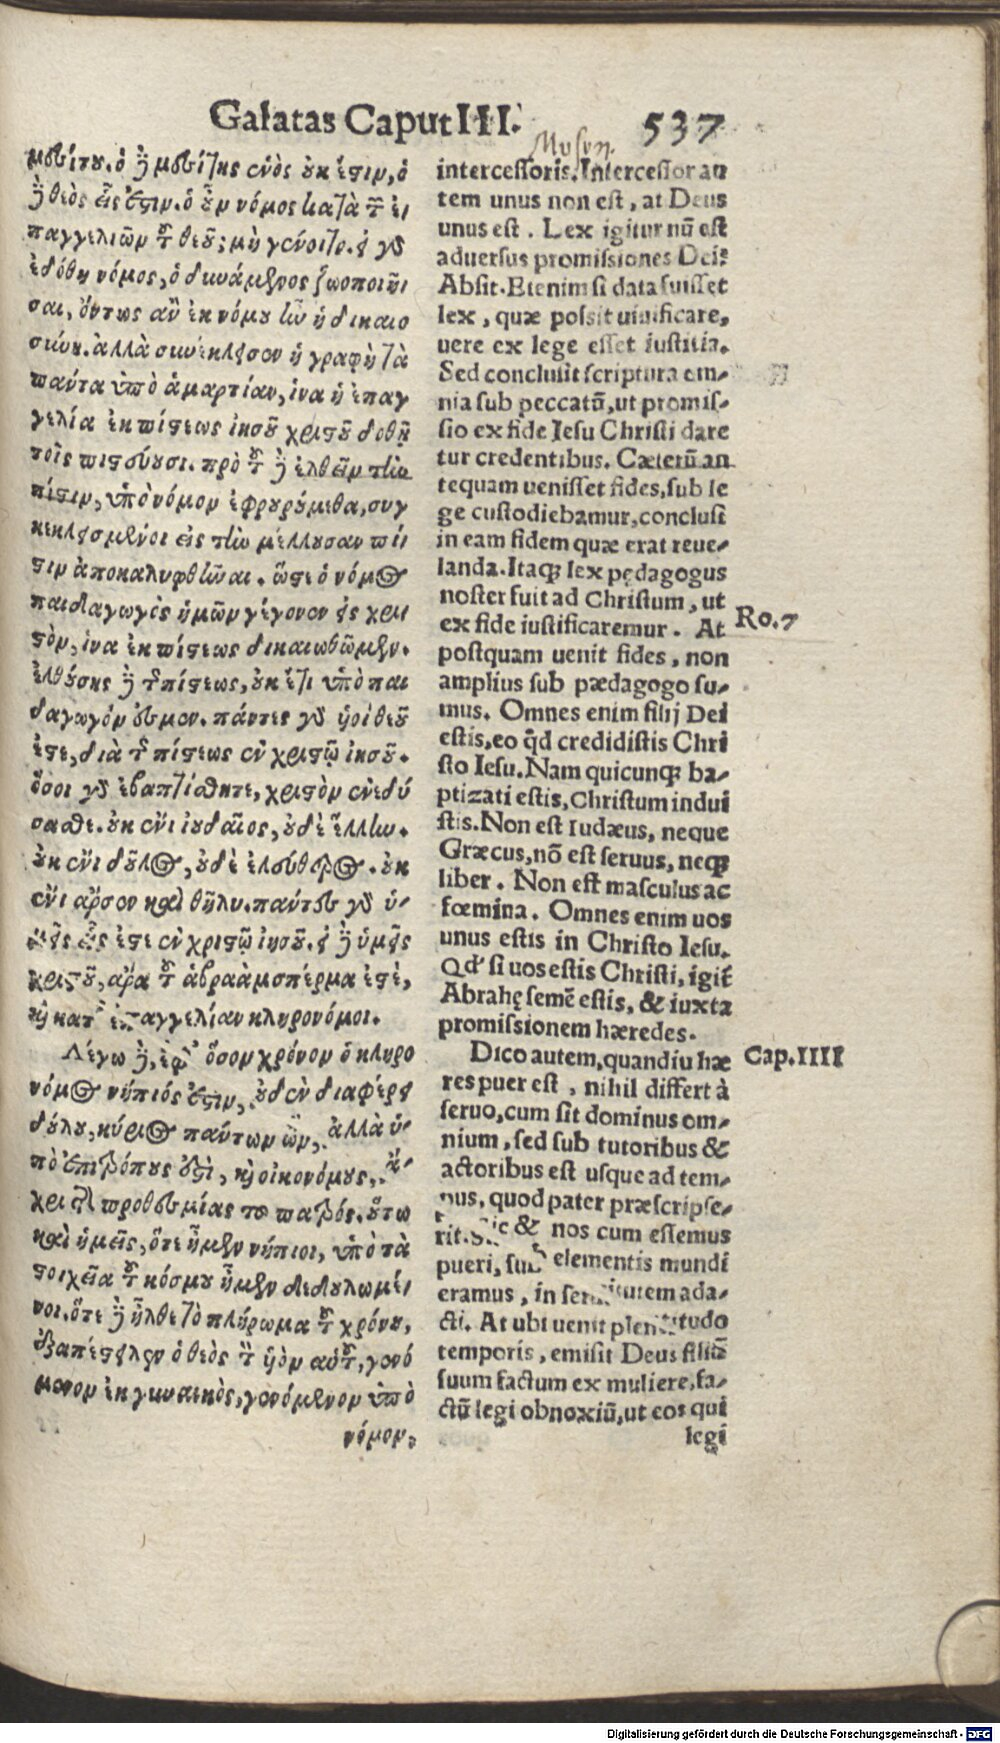 Galatas Caput III. 537
Mosen.
μεσίτου. ὁ δὲ μεσίτης ἑνὸς οὐκ ἔστιν, ὁ
δὲ θεὸς εἷς ἐστιν. ὁ οὖν νόμος κατὰ τῶν ἐ
παγγελιῶν τοῦ θεοῦ; μὴ γένοιτο. εἰ γὰρ
ἐδόθη νόμος, ὁ δυνάμενος ζωοποιῆ
σαι, ὄντως ἂν ἐκ νόμου ἦν ἡ δικαιο
σύνη. ἀλλὰ συνέκλεισεν ἡ γραφὴ τὰ
πάντα ὑπὸ ἁμαρτίαν, ἵνα ἡ ἐπαγ
γελία ἐκ πίστεως ἰησοῦ χριστοῦ δοθῇ
τοῖς πιστεύουσι. πρὸ τοῦ δὲ ἐλθεῖν τὴν
πίστιν, ὑπὸ νόμον ἐφρουρούμεθα, συγ
κεκλεισμένοι εἰς τὴν μέλλουσαν πί
στιν ἀποκαλυφθῆναι. ὥστε ὁ νόμος
παιδαγωγὸς ἡμῶν γέγονεν εἰς χρι
στὸν, ἵνα ἐκ πίστεως δικαιωθῶμεν.
ἐλθούσης δὲ τῆς πίστεως, οὐκ ἔτι ὑπὸ παι
δαγωγόν ἐσμεν. πάντες γὰρ υἱοὶ θεοῦ
ἐστε, διὰ τῆς πίστεως ἐν χριστῷ ἰησοῦ.
ὅσοι γὰρ ἐβαπτίσθητε, χριστὸν ἐνεδύ
σασθε. οὐκ ἔνι ἰουδαῖος, οὐδὲ ἕλλην.
οὐκ ἔνι δοῦλος, οὐδὲ ἐλεύθερος. οὐκ
ἔνι ἄρσεν καὶ θῆλυ. πάντες γὰρ ὑ-
μεῖς εἷς ἐστε ἐν χριστῷ ἰησοῦ. εἰ δὲ ὑμεῖς
χριστοῦ, ἄρα τοῦ ἀβραὰμ σπέρμα ἐστὲ,
καὶ κατ' ἐπαγγελίαν κληρονόμοι.
Λέγω δὲ, ἐφ' ὅσον χρόνον ὁ κληρο
νόμος νήπιός ἐστιν, οὐδὲν διαφέρει
δούλου, κύριος πάντων ὢν, ἀλλὰ ὑ-
πὸ ἐπιτρόπους ἐστὶ, καὶ οἰκονόμους, ἄ-
χρι τῆς προθεσμίας τοῦ πατρός. οὕτω
καὶ ἡμεῖς, ὅτε ἦμεν νήπιοι, ὑπὸ τὰ
στοιχεῖα τοῦ κόσμου ἦμεν δεδουλωμέ
νοι. ὅτε δὲ ἦλθε τὸ πλήρωμα τοῦ χρόνου,
ἐξαπέστειλεν ὁ θεὸς τὸν υἱὸν αὑτοῦ, γενό
μενον ἐκ γυναικὸς, γενόμενον ὑπὸ
νόμον,
intercessoris. Intercessor au
tem unus non est, at Deus
unus est. Lex igitur nū est
aduersus promissiones Dei?
Absit. Etenim si data fuisset
lex, quæ possit uiuificare,
uere ex lege esset iustitia.
Sed conclusit scriptura om-
nia sub peccatū, ut promis-
sio ex fide Iesu Christi dare
tur credentibus. Cæterū an
tequam uenisset fides, sub le
ge custodiebamur, conclusi
in eam fidem quæ erat reue-
landa. Itaqꝫ lex pędagogus
noster fuit ad Christum, ut
ex fide iustificaremur. At
postquam uenit fides, non
amplius sub pædagogo su-
mus. Omnes enim filij Dei
estis, eo q̄d credidistis Chri
sto Iesu. Nam quicunqꝫ ba-
ptizati estis, Christum indui
stis. Non est Iudæus, neque
Græcus, nō est seruus, neqꝫ
liber. Non est masculus ac
fœmina. Omnes enim uos
unus estis in Christo Iesu.
Qd' si uos estis Christi, igit̃
Abrahę semē estis, & iuxta
promissionem hæredes.
Dico autem, quandiu hæ
res puer est, nihil differt à
seruo, cum sit dominus om-
nium, sed sub tutoribus &
actoribus est usque ad tem-
pus, quod pater præscripse-
rit. Sic & nos cum essemus
pueri, sub elementis mundi
eramus, in seruitutem ada-
cti. At ubi uenit plenitudo
temporis, emisit Deus filiū
suum factum ex muliere, fa-
ctū legi obnoxiū, ut eos qui
legi
Ro. 7
Cap. IIII
Digitalisierung gefördert durch die Deutsche Forschungsgemeinschaft - DFG